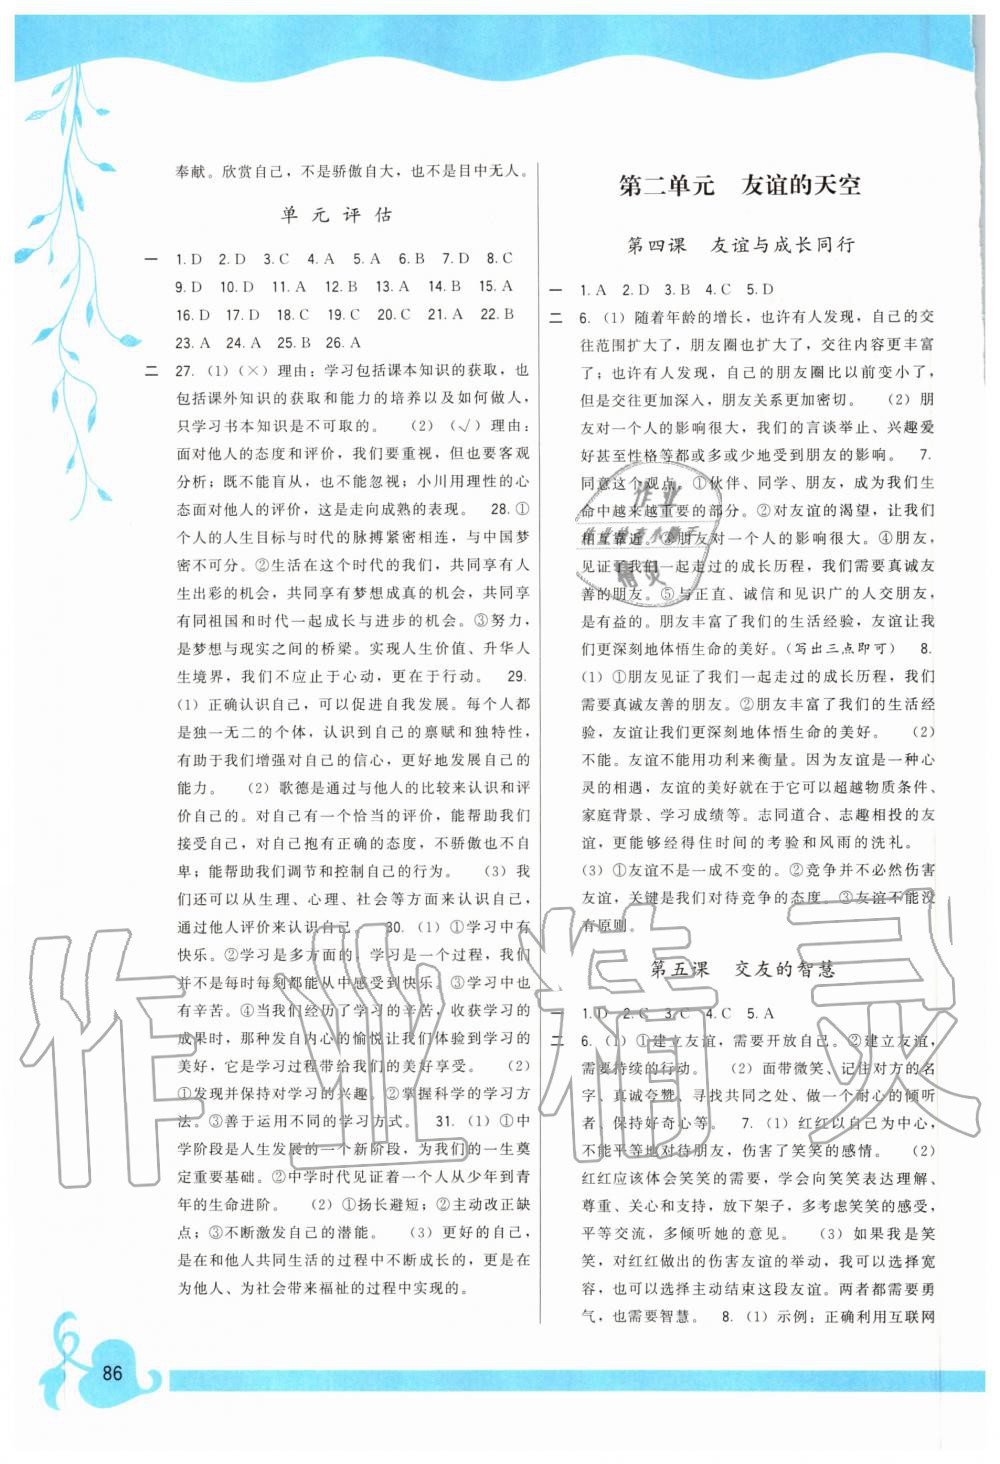 奉献。欣赏自己，不是骄傲自大，也不是目中无人。
单元评估
一 1. D 2. D 3. C 4. A 5. A 6. B 7. D 8. C
9. D 10. D 11. A 12. B 13. B 14. B 15. A
16. D 17. D 18. C 19. C 20. C 21. A 22. B
23. A 24. A 25. B 26. A
二 27. （1）（×）理由：学习包括课本知识的获取，也
包括课外知识的获取和能力的培养以及如何做人，
只学习书本知识是不可取的。 （2）（√）理由：
面对他人的态度和评价，我们要重视，但也要客观
分析；既不能盲从，也不能忽视；小川用理性的心
态面对他人的评价，这是走向成熟的表现。 28. ①
个人的人生目标与时代的脉搏紧密相连，与中国梦
密不可分。②生活在这个时代的我们，共同享有人
生出彩的机会，共同享有梦想成真的机会，共同享
有同祖国和时代一起成长与进步的机会。③努力，
是梦想与现实之间的桥梁。实现人生价值、升华人
生境界，我们不应止于心动，更在于行动。 29.
（1）正确认识自己，可以促进自我发展。每个人都
是独一无二的个体，认识到自己的禀赋和独特性，
有助于我们增强对自己的信心，更好地发展自己的
能力。 （2）歌德是通过与他人的比较来认识和评
价自己的。对自己有一个恰当的评价，能帮助我们
接受自己，对自己抱有正确的态度，不骄傲也不自
卑；能帮助我们调节和控制自己的行为。 （3）我
们还可以从生理、心理、社会等方面来认识自己，
通过他人评价来认识自己。 30. （1）①学习中有
快乐。②学习是多方面的，学习是一个过程，我们
并不是每时每刻都能从中感受到快乐。③学习中也
有辛苦。④当我们经历了学习的辛苦，收获学习的
成果时，那种发自内心的愉悦让我们体验到学习的
美好，它是学习过程带给我们的美好享受。 （2）
①发现并保持对学习的兴趣。②掌握科学的学习方
法。③善于运用不同的学习方式。 31. （1）①中
学阶段是人生发展的一个新阶段，为我们的一生奠
定重要基础。②中学时代见证着一个人从少年到青
年的生命进阶。 （2）①扬长避短；②主动改正缺
点；③不断激发自己的潜能。 （3）更好的自己，
是在和他人共同生活的过程中不断成长的，更是在
为他人、为社会带来福祉的过程中实现的。
第二单元 友谊的天空
第四课 友谊与成长同行
一 1. A 2. D 3. B 4. C 5. D
二 6. （1）随着年龄的增长，也许有人发现，自己的交
往范围扩大了，朋友圈也扩大了，交往内容更丰富
了；也许有人发现，自己的朋友圈比以前变小了，
但是交往更加深入，朋友关系更加密切。 （2）朋
友对一个人的影响很大，我们的言谈举止、兴趣爱
好甚至性格等都或多或少地受到朋友的影响。 7.
同意这个观点。①伙伴、同学、朋友，成为我们生
命中越来越重要的部分。②对友谊的渴望，让我们
相互靠近。③朋友对一个人的影响很大。④朋友，
见证了我们一起走过的成长历程，我们需要真诚友
善的朋友。⑤与正直、诚信和见识广的人交朋友，
是有益的。朋友丰富了我们的生活经验，友谊让我
们更深刻地体悟生命的美好。（写出三点即可） 8.
（1）①朋友见证了我们一起走过的成长历程，我们
需要真诚友善的朋友。②朋友丰富了我们的生活经
验，友谊让我们更深刻地体悟生命的美好。 （2）
不能。友谊不能用功利来衡量。因为友谊是一种心
灵的相遇。友谊的美好就在于它可以超越物质条件、
家庭背景、学习成绩等。志同道合、志趣相投的友
谊，更能够经得住时间的考验和风雨的洗礼。
（3）①友谊不是一成不变的。②竞争并不必然伤害
友谊，关键是我们对待竞争的态度。③友谊不能没
有原则。
第五课 交友的智慧
一 1. D 2. C 3. C 4. C 5. A
二 6. （1）①建立友谊，需要开放自己。②建立友谊，
需要持续的行动。 （2）面带微笑、记住对方的名
字、真诚夸赞、寻找共同之处、做一个耐心的倾听
者、保持好奇心等。 7. （1）红红以自己为中心，
不能平等地对待朋友，伤害了笑笑的感情。 （2）
红红应该体会笑笑的需要，学会向笑笑表达理解、
尊重、关心和支持，放下架子，多考虑笑笑的感受，
平等交流，多倾听她的意见。 （3）如果我是笑
笑，对红红做出的伤害友谊的举动，我可以选择宽
容，也可以选择主动结束这段友谊。两者都需要勇
气，也需要智慧。 8. （1）示例：正确利用互联网
86
作业精灵